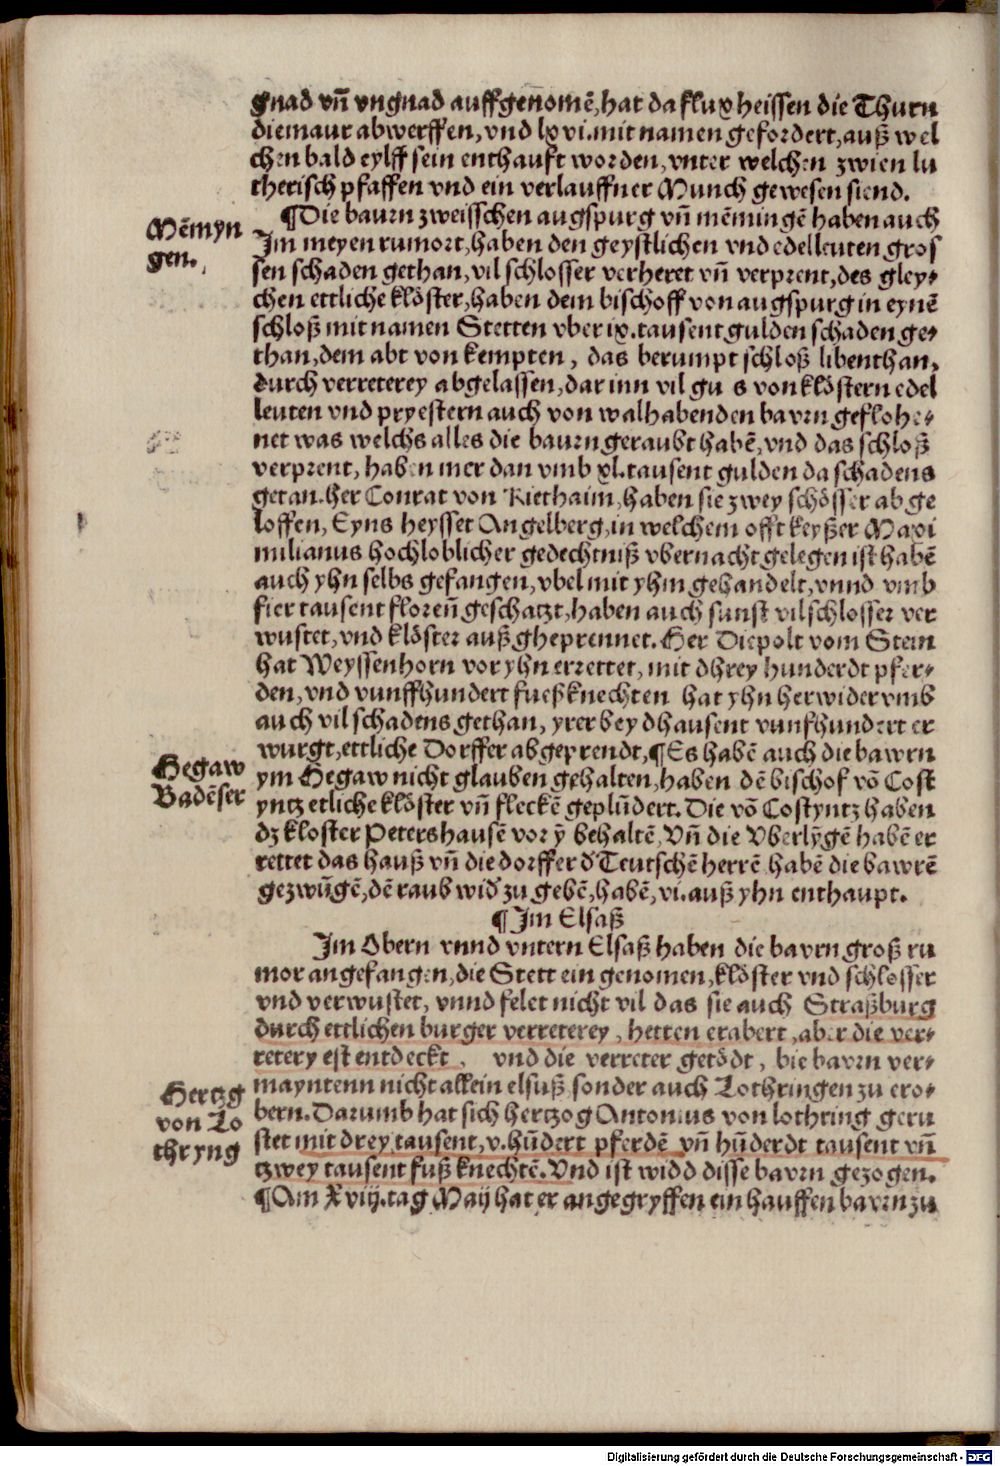 gnad vñ vngnad auffgenomẽ, hat da flux heissen die Thurn
die maur abwerffen, vnd lxvi. mit namen gefordert, auß wel
chen bald eylff sein enthauft worden, vnter welchen zwien lu
therisch pfaffen vnd ein verlauffner Munch gewesen siend.
Mẽmyn
gen.
¶Die baurn zweisschen augspurg vñ mẽmingẽ haben auch
Im meyen rumort, haben den geystlichen vnd edelleuten gros
sen schaden gethan, vil schlosser verheret vñ verprent, des gley-
chen ettliche klöster, haben dem bischoff von augspurg in eynẽ
schloß mit namen Stetten vber ix. tausent gulden schaden ge-
than, dem abt von kempten, das berumpt schloß libenthan,
durch verreterey abgelassen, dar inn vil gu s von klöstern edel
leuten vnd pryestern auch von walhabenden bavrn geflohe-
net was welchs alles die baurn geraubt habẽ, vnd das schloß
verprent, haben mer dan vmb xl. tausent gulden da schadens
getan. her Conrat von Riethaim, haben sie zwey schösser ab ge
loffen, Eyns heysset Angelberg, in welchem offt keyßer Maxi
milianus hochloblicher gedechtniß vbernacht gelegen ist habẽ
auch yhn selbs gefangen, vbel mit yhm gehandelt, vnnd vmb
fier tausent floreñ geschatzt, haben auch sunst vil schlosser ver
wustet, vnd klöster auß gheprennet. Her Diepolt vom Stein
hat Weyssenhorn vor yhn errettet, mit dhrey hunderdt pfer-
den, vnd vunffhundert fueßknechten hat yhn herwider vmb
auch vil schadens gethan, yrer bey dhausent vunfhundert er
wurgt, ettliche Dorffer abgeprendt, ¶Es habẽ auch die bawrn
Hegaw
Badẽser
ym Hegaw nicht glauben gehalten, haben dẽ bischof võ Cost
yntz etliche klöster vñ fleckẽ geplũdert. Die võ Costyntz haben
dz kloster Petershausẽ vor ỹ behaltẽ, Vñ die Vberlỹgẽ habẽ er
rettet das hauß vñ die dorffer d̕ Teutschẽ herrẽ habẽ die bawrẽ
gezwũgẽ, dẽ raub wid̕ zu gebẽ, habẽ, vi. auß yhn enthaupt.
¶Im Elsaß
Im Obern vnnd vntern Elsaß haben die bavrn groß ru
mor angefangen, die Stett ein genomen, klöster vnd schlosser
vnd verwustet, vnnd felet nicht vil das sie auch Straßburg
durch ettlichen burger verreterey, hetten erabert, aber die ver-
retery est entdeckt, vnd die verreter getödt, bie bavrn ver-
Hertzg
von Lo
thryng
mayntenn nicht allein elsuß sonder auch Lothringen zu ero-
bern. Darumb hat sich hertzog Antonius von lothring geru
stet mit drey tausent, v. hũdert pferdẽ vñ hũderdt tausent vñ
tzwey tausent fuß knechtẽ. Vnd ist widd disse bavrn gezogen.
¶Am Xviij. tag Maij hat er angegryffen ein hauffen bavrn zu
Digitalisierung gefördert durch die Deutsche Forschungsgemeinschaft - DFG